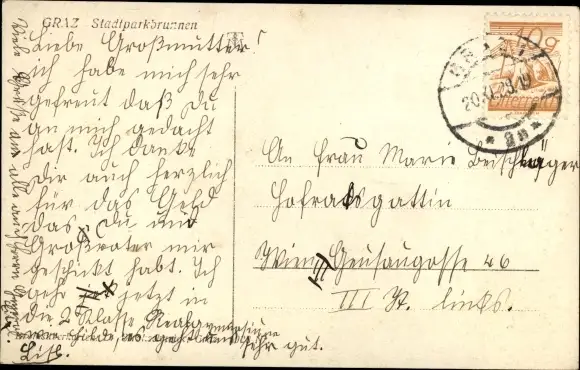 GRAZ Stadtparkbrunnen
Liebe Großmutter!
ich habe mich sehr
gefreut daß Du
an mich gedacht
hast. Ich danke
Dir auch herzlich
für das Geld
das Du und
Großvater mir
geschickt habt. Ich
gehe jetzt in
die 2 Klasse Realgymnasium
es geht
sehr gut.
Viele Grüße an alle auch
40 g
Österreich
GRAZ 1
An Frau Marie Beischläger
Hofratsgattin
Wien III Geusaugasse 46
III St. links.